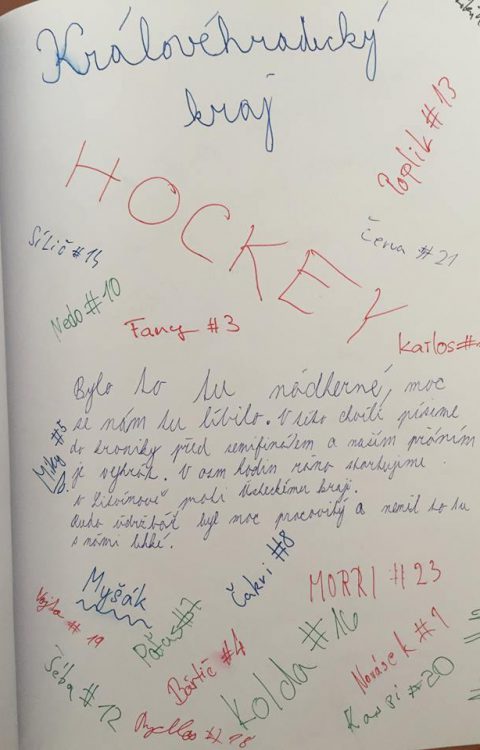 Královéhradecký
kraj
Poplik #13
HOCKEY
Silič #14
Čena #21
Nedo #10
Fany #3
Karlos #
Miky #5
Bylo to tu nádherné, moc
se nám tu líbilo. V této chvíli píšeme
do kroniky před semifinálem a naším přáním
je vyhrát. V osm hodin ráno startujeme
v Litvínově proti Ústeckému kraji.
údržbář byl moc pracovitý a neměl to tu
s námi lehké.
Čákri #8
Myšák
MORRI #23
Vojta #19
Paťas #7
Kolda #16
Bártič #4
Novásek #9
Šéba #12
Kansi #20
#18